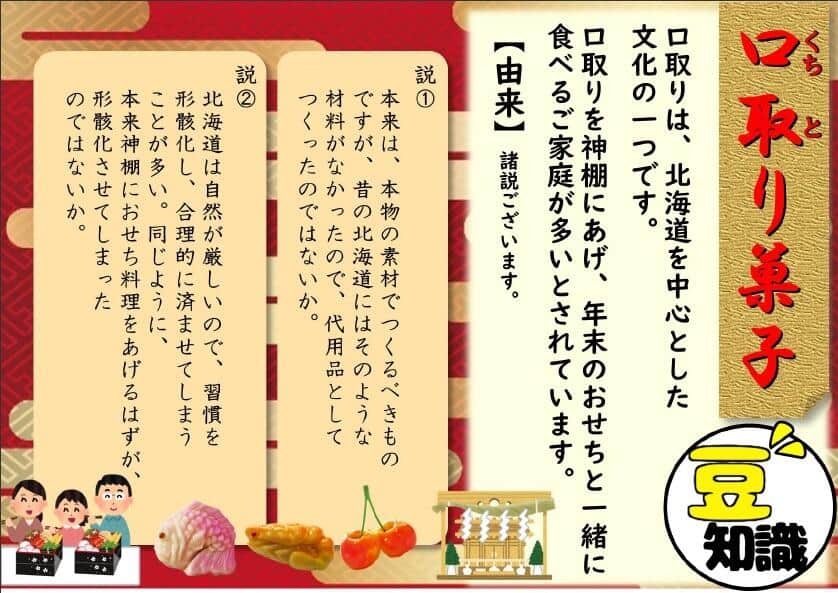 口取り菓子
くちと
口取りは、北海道を中心とした
文化の一つです。
口取りを神棚にあげ、年末のおせちと一緒に
食べるご家庭が多いとされています。
【由来】諸説ございます。
説①
本来は、本物の素材でつくるべきもの
ですが、昔の北海道にはそのような
材料がなかったので、代用品として
つくったのではないか。
説②
北海道は自然が厳しいので、習慣を
形骸化し、合理的に済ませてしまう
ことが多い。同じように、
本来神棚におせち料理をあげるはずが、
形骸化させてしまった
のではないか。
豆
知識